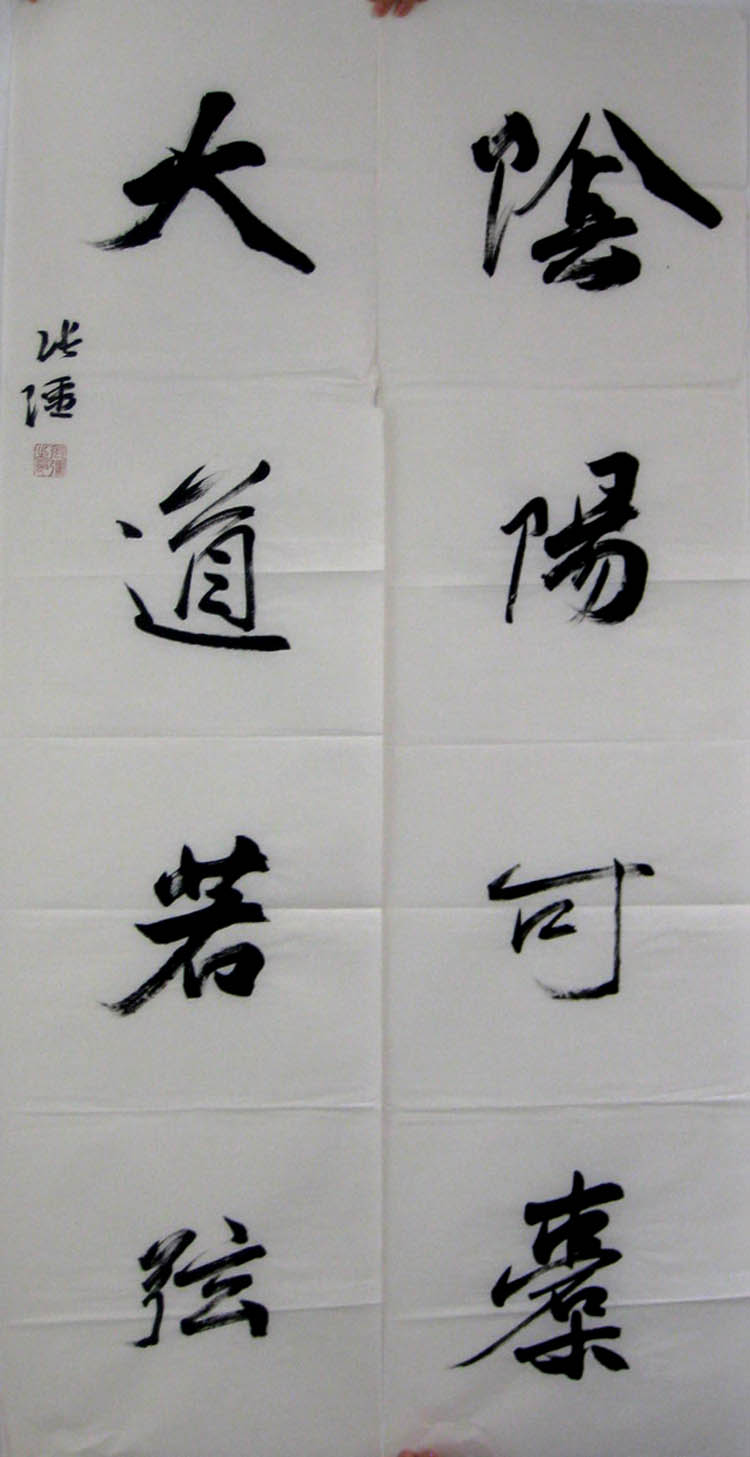 陰陽可橐
大道若弦